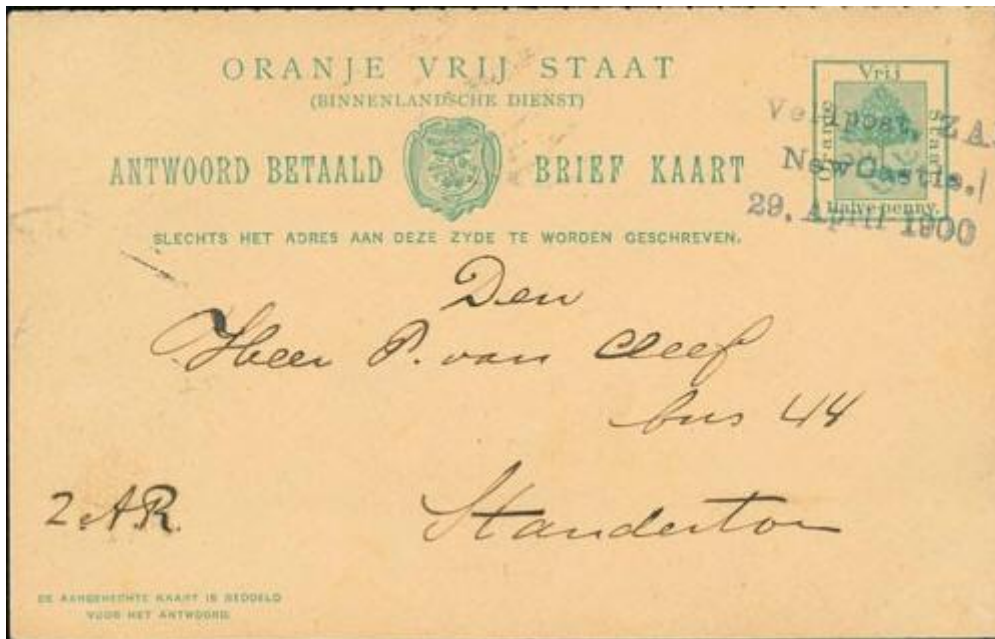 ORANJE VRIJ STAAT
(BINNENLANDSCHE DIENST)
ANTWOORD BETAALD BRIEF KAART
SLECHTS HET ADRES AAN DEZE ZYDE TE WORDEN GESCHREVEN.
Vrij
Oranje
Staat
Halve penny.
Veldpost, Z.A.
NewCastle.
29. April 1900
Den
Heer P. van Cleef
bus 44
Standerton
Z.A.R.
DE AANGEHECHTE KAART IS BEDOELD
VOOR HET ANTWOORD.